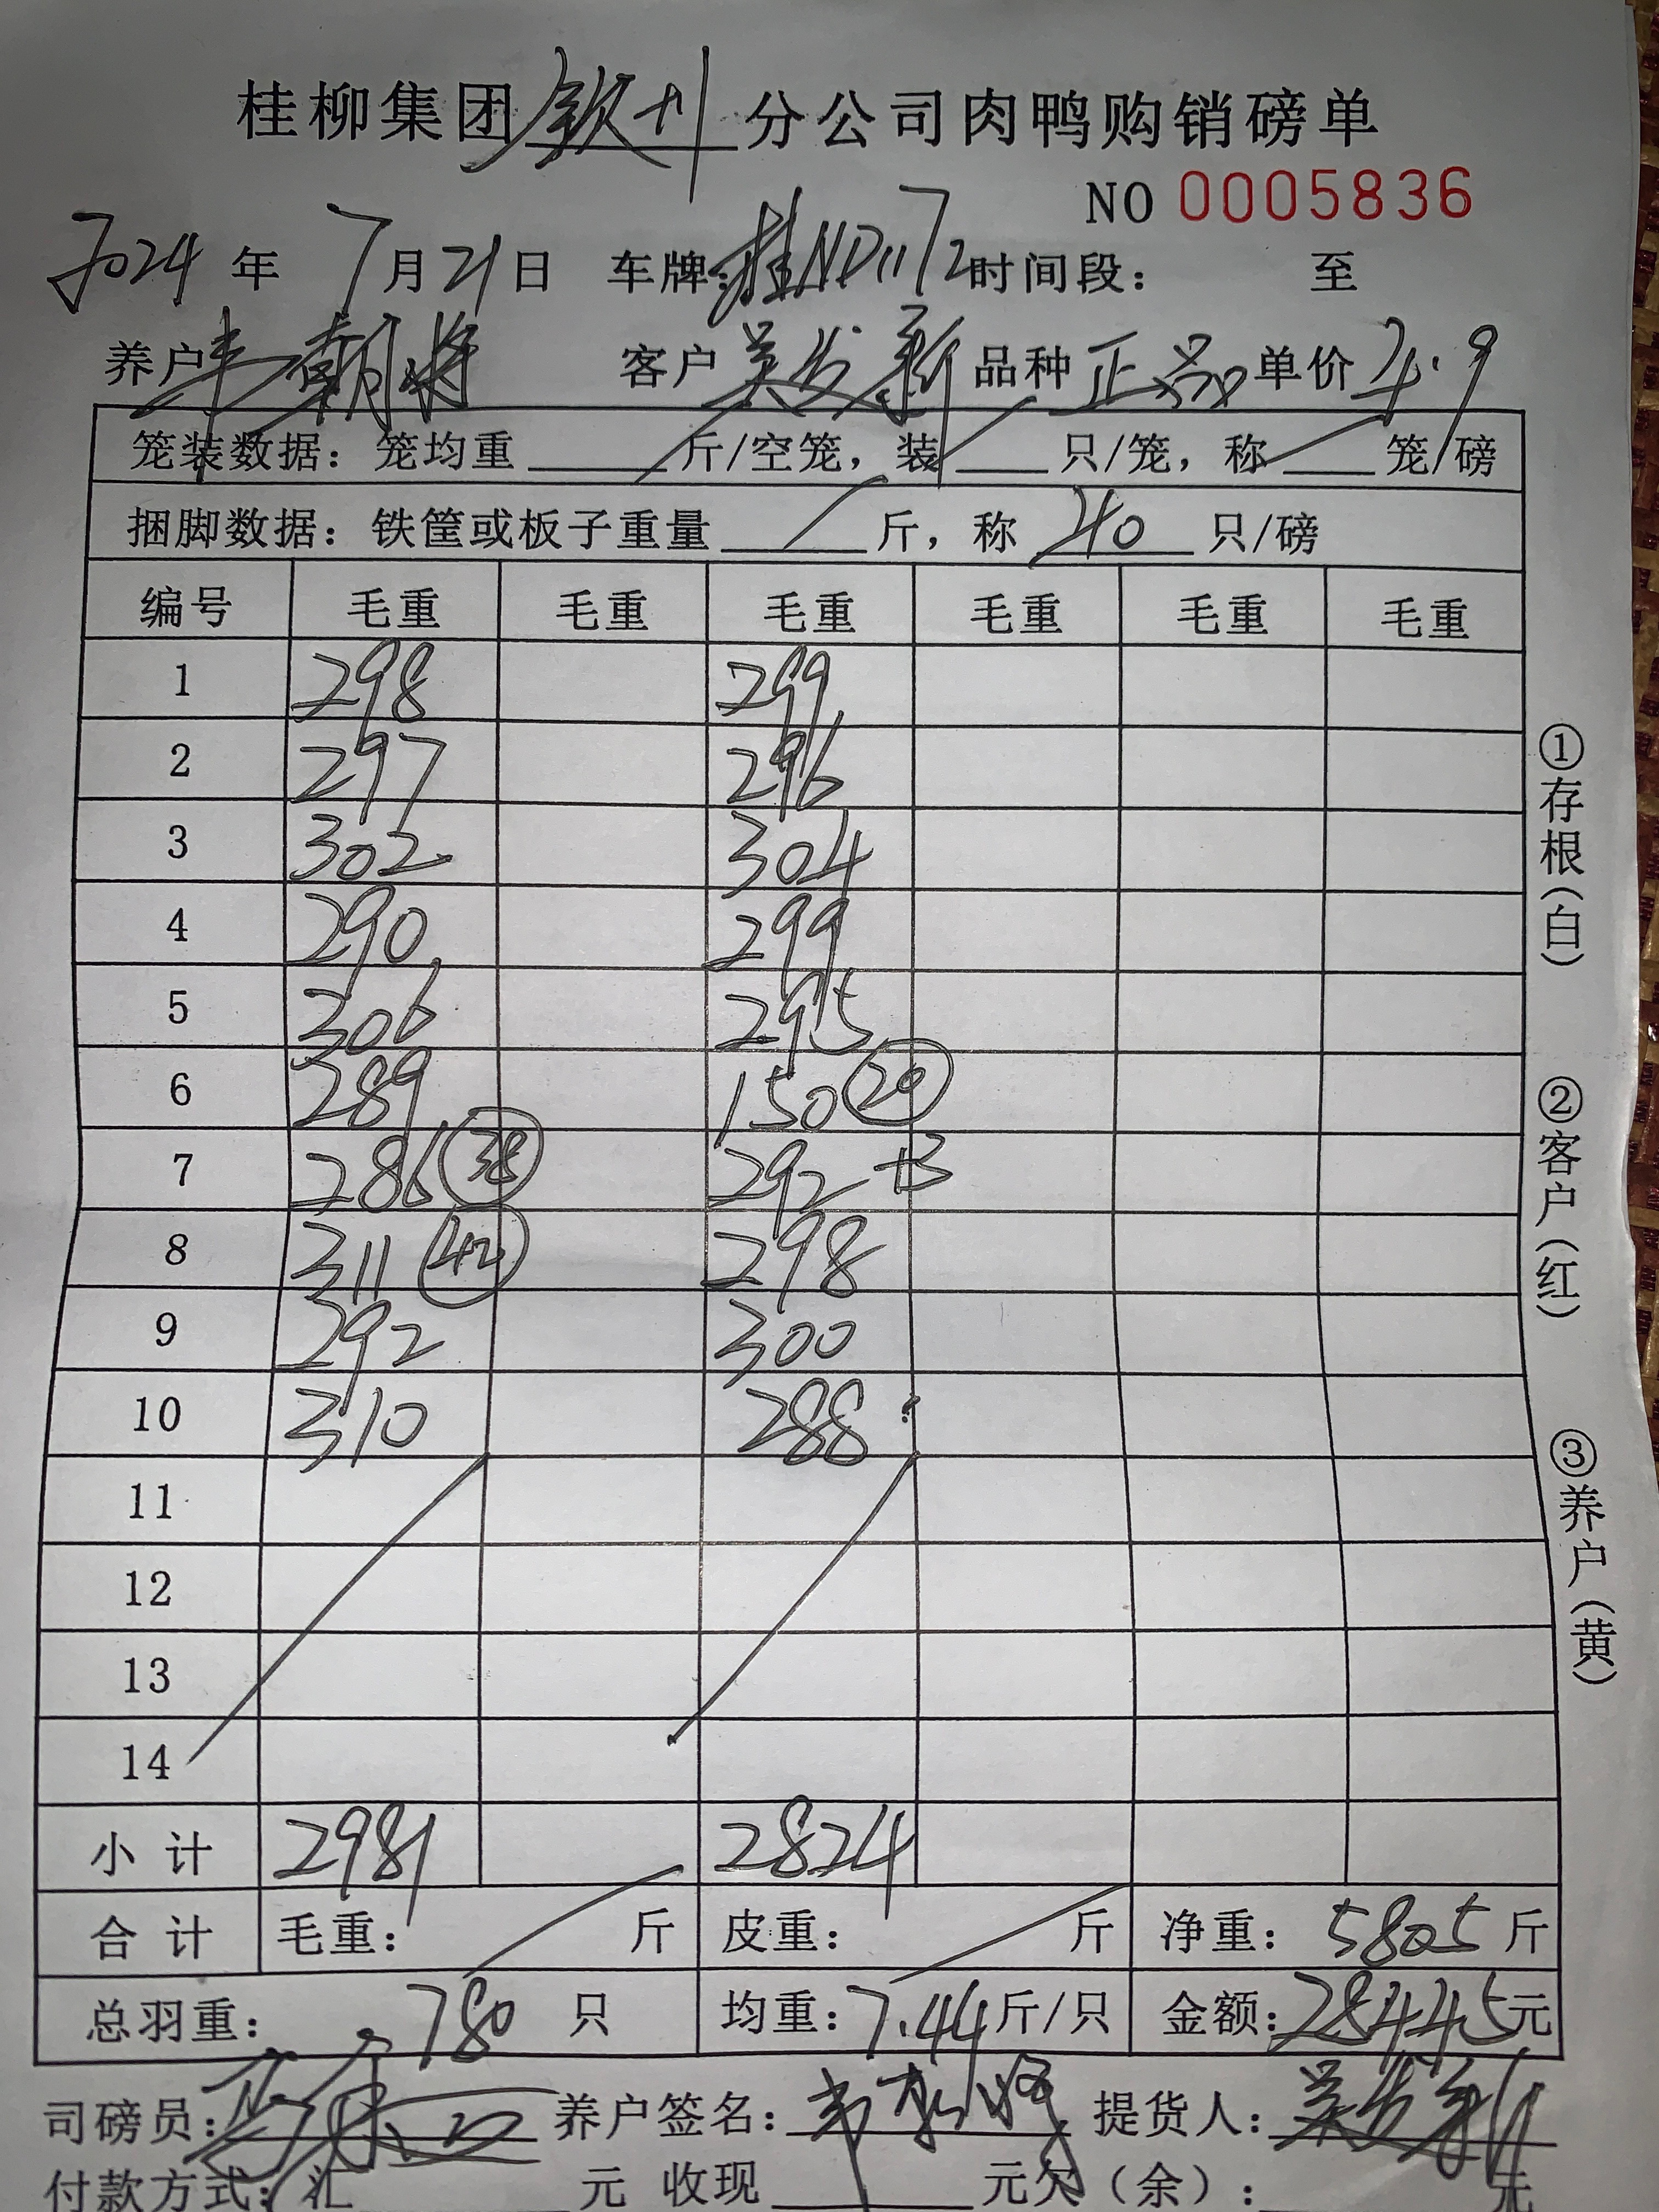 桂柳集团钦州分公司肉鸭购销磅单
NO 0005836
2024年 7月21日 车牌:桂ND1172时间段: 至
养户韦朝将 客户吴发新品种正品单价4.9
笼装数据:笼均重 斤/空笼,装 只/笼,称 笼/磅
捆脚数据:铁筐或板子重量 斤,称 40 只/磅
编号 毛重 毛重 毛重 毛重 毛重 毛重
1 298 299
2 297 296
3 302 304
4 290 299
5 306 295
6 289 150 20
7 286 38 292 +3
8 311 42 298
9 292 300
10 310 288
11
12
13
14
小计 2981 2824
合计 毛重: 斤 皮重: 斤 净重: 5805斤
总羽重: 780 只 均重:7.44斤/只 金额:28445元
司磅员: 养户签名: 提货人:吴发新
付款方式:汇 元 收现 元欠(余): 元
①存根(白)
②客户(红)
③养户(黄)